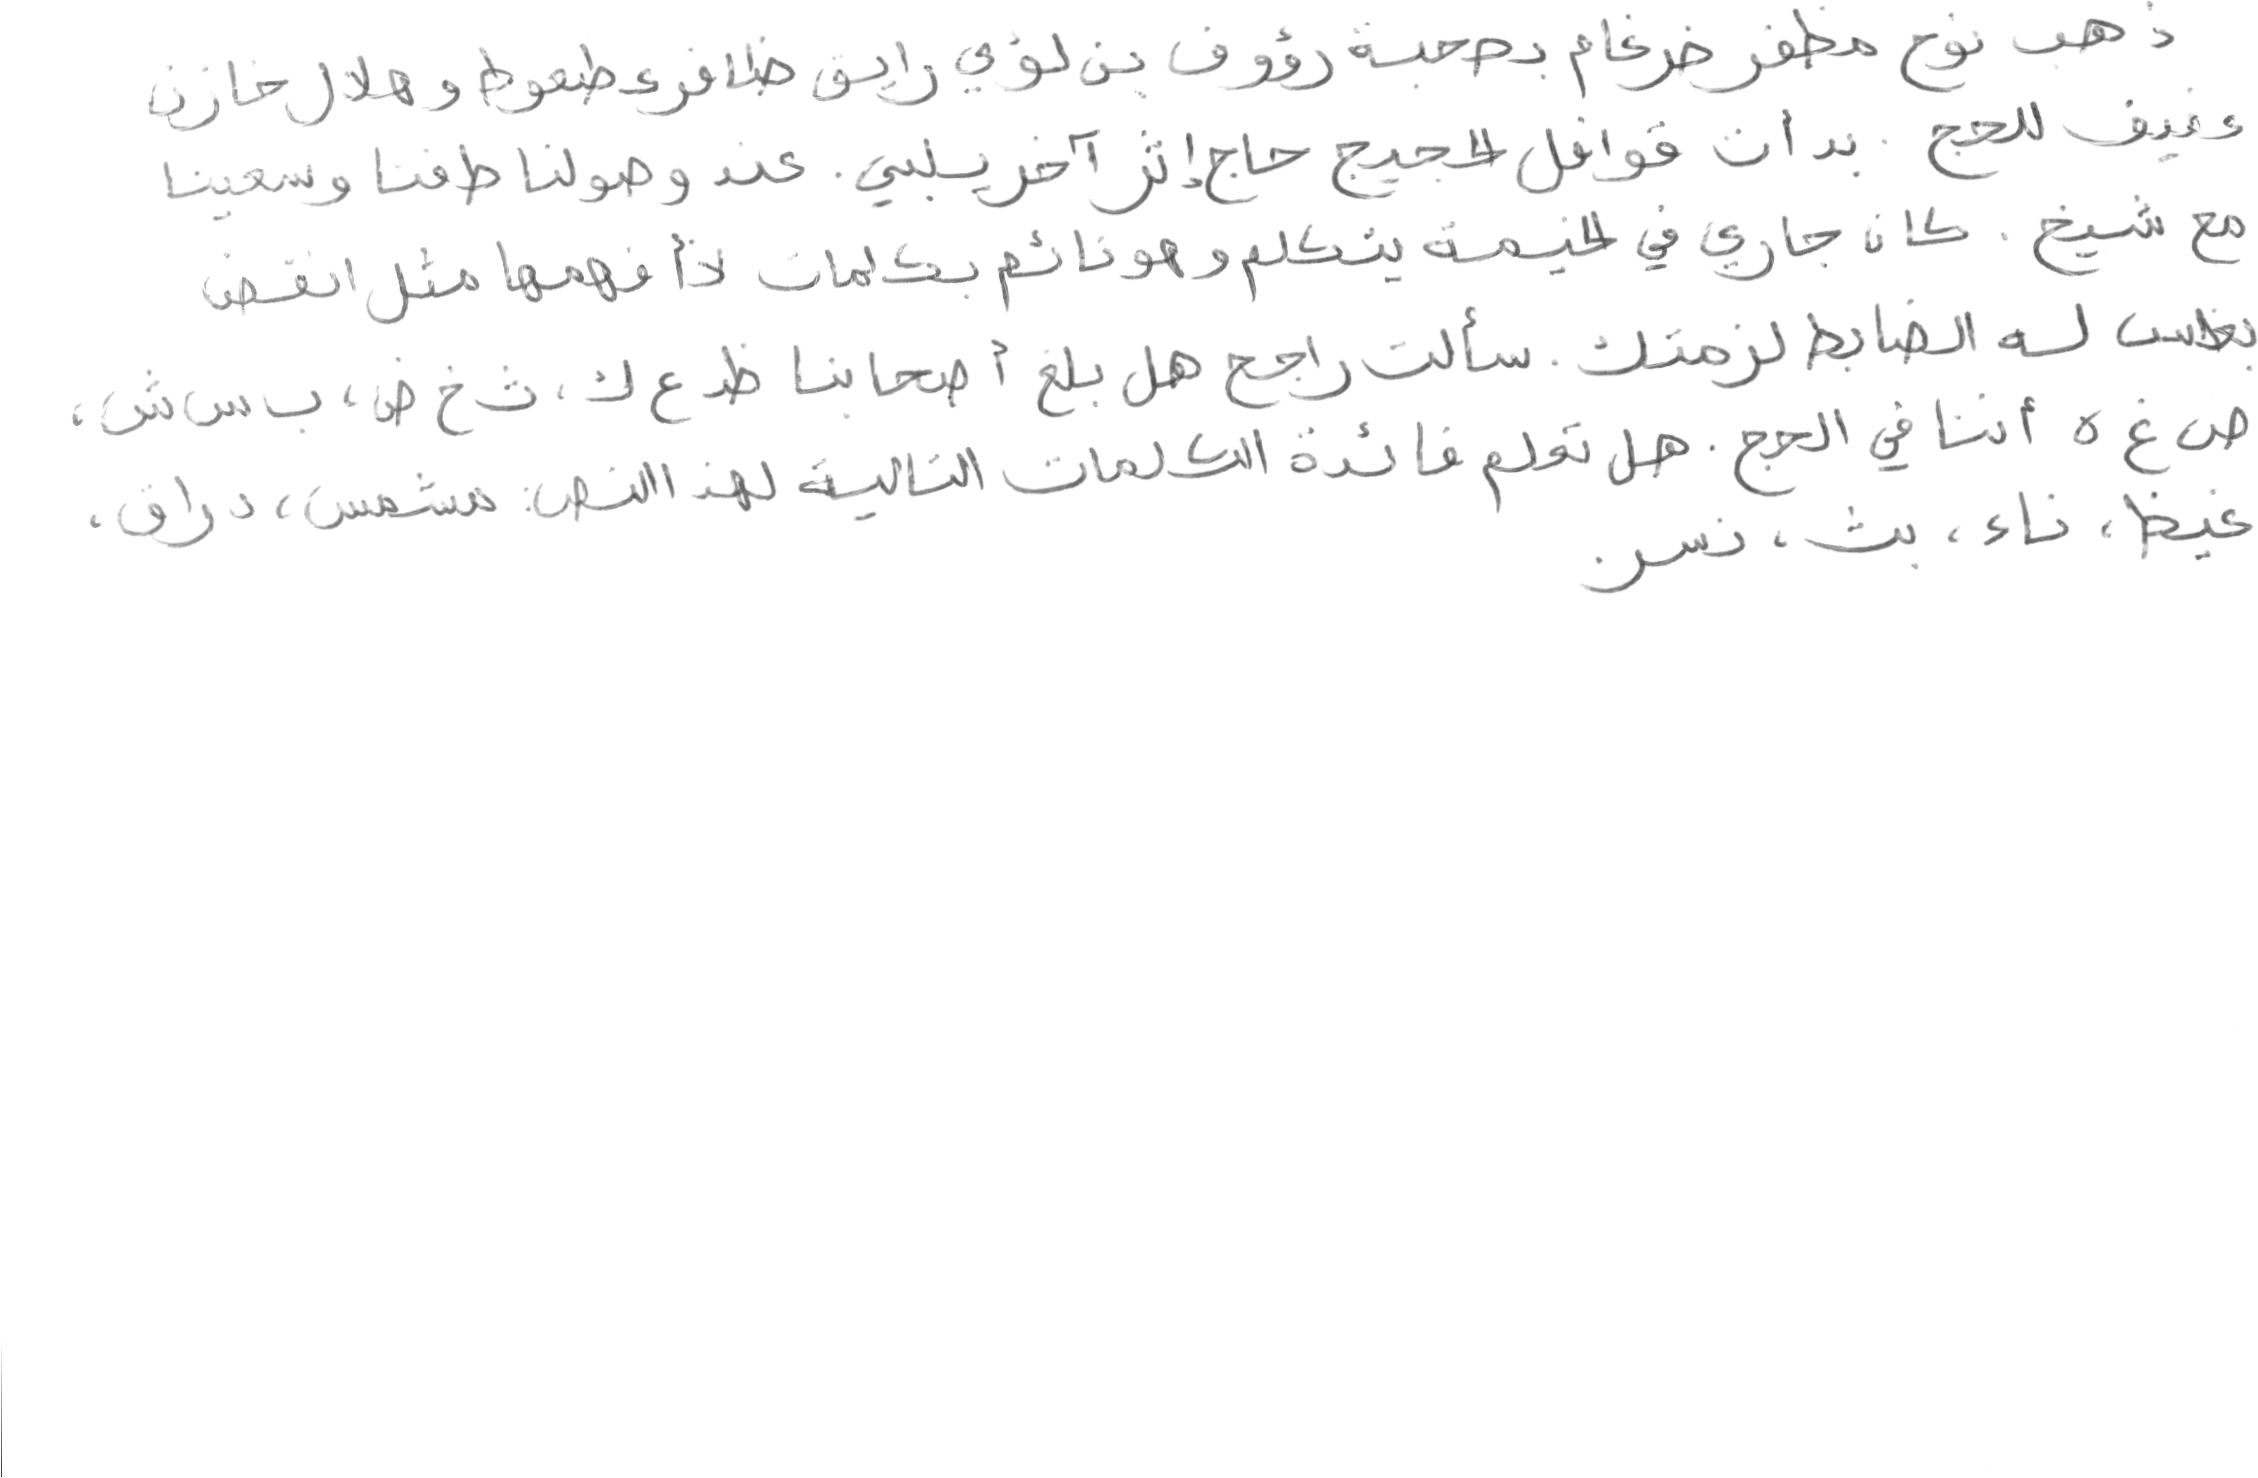 ذهب نوح مظفر ضرغام بصحبة رؤوف بن لؤي رايق ظافر عطعوط وهلال خازن
عفيف للحج . بدأت قوافل الحجيج حاج إثر آخر يلبي . عند وصولنا طفنا وسعينا
مع شيخ . كان جاري في الخيمة يتكلم وهو نائم بكلمات لا أفهمها مثل انقض
لسه الضابط لزمتك . سألت راجح هل بلغ أصحابنا ظ ع ك ، ث خ ض ، ب س ش ،
ص غ ة أننا في الحج . هل تعلم فائدة الكلمات التالية لهذا النص : مشمس ، دراق ،
غيظ ، ناء ، بث ، نسر .